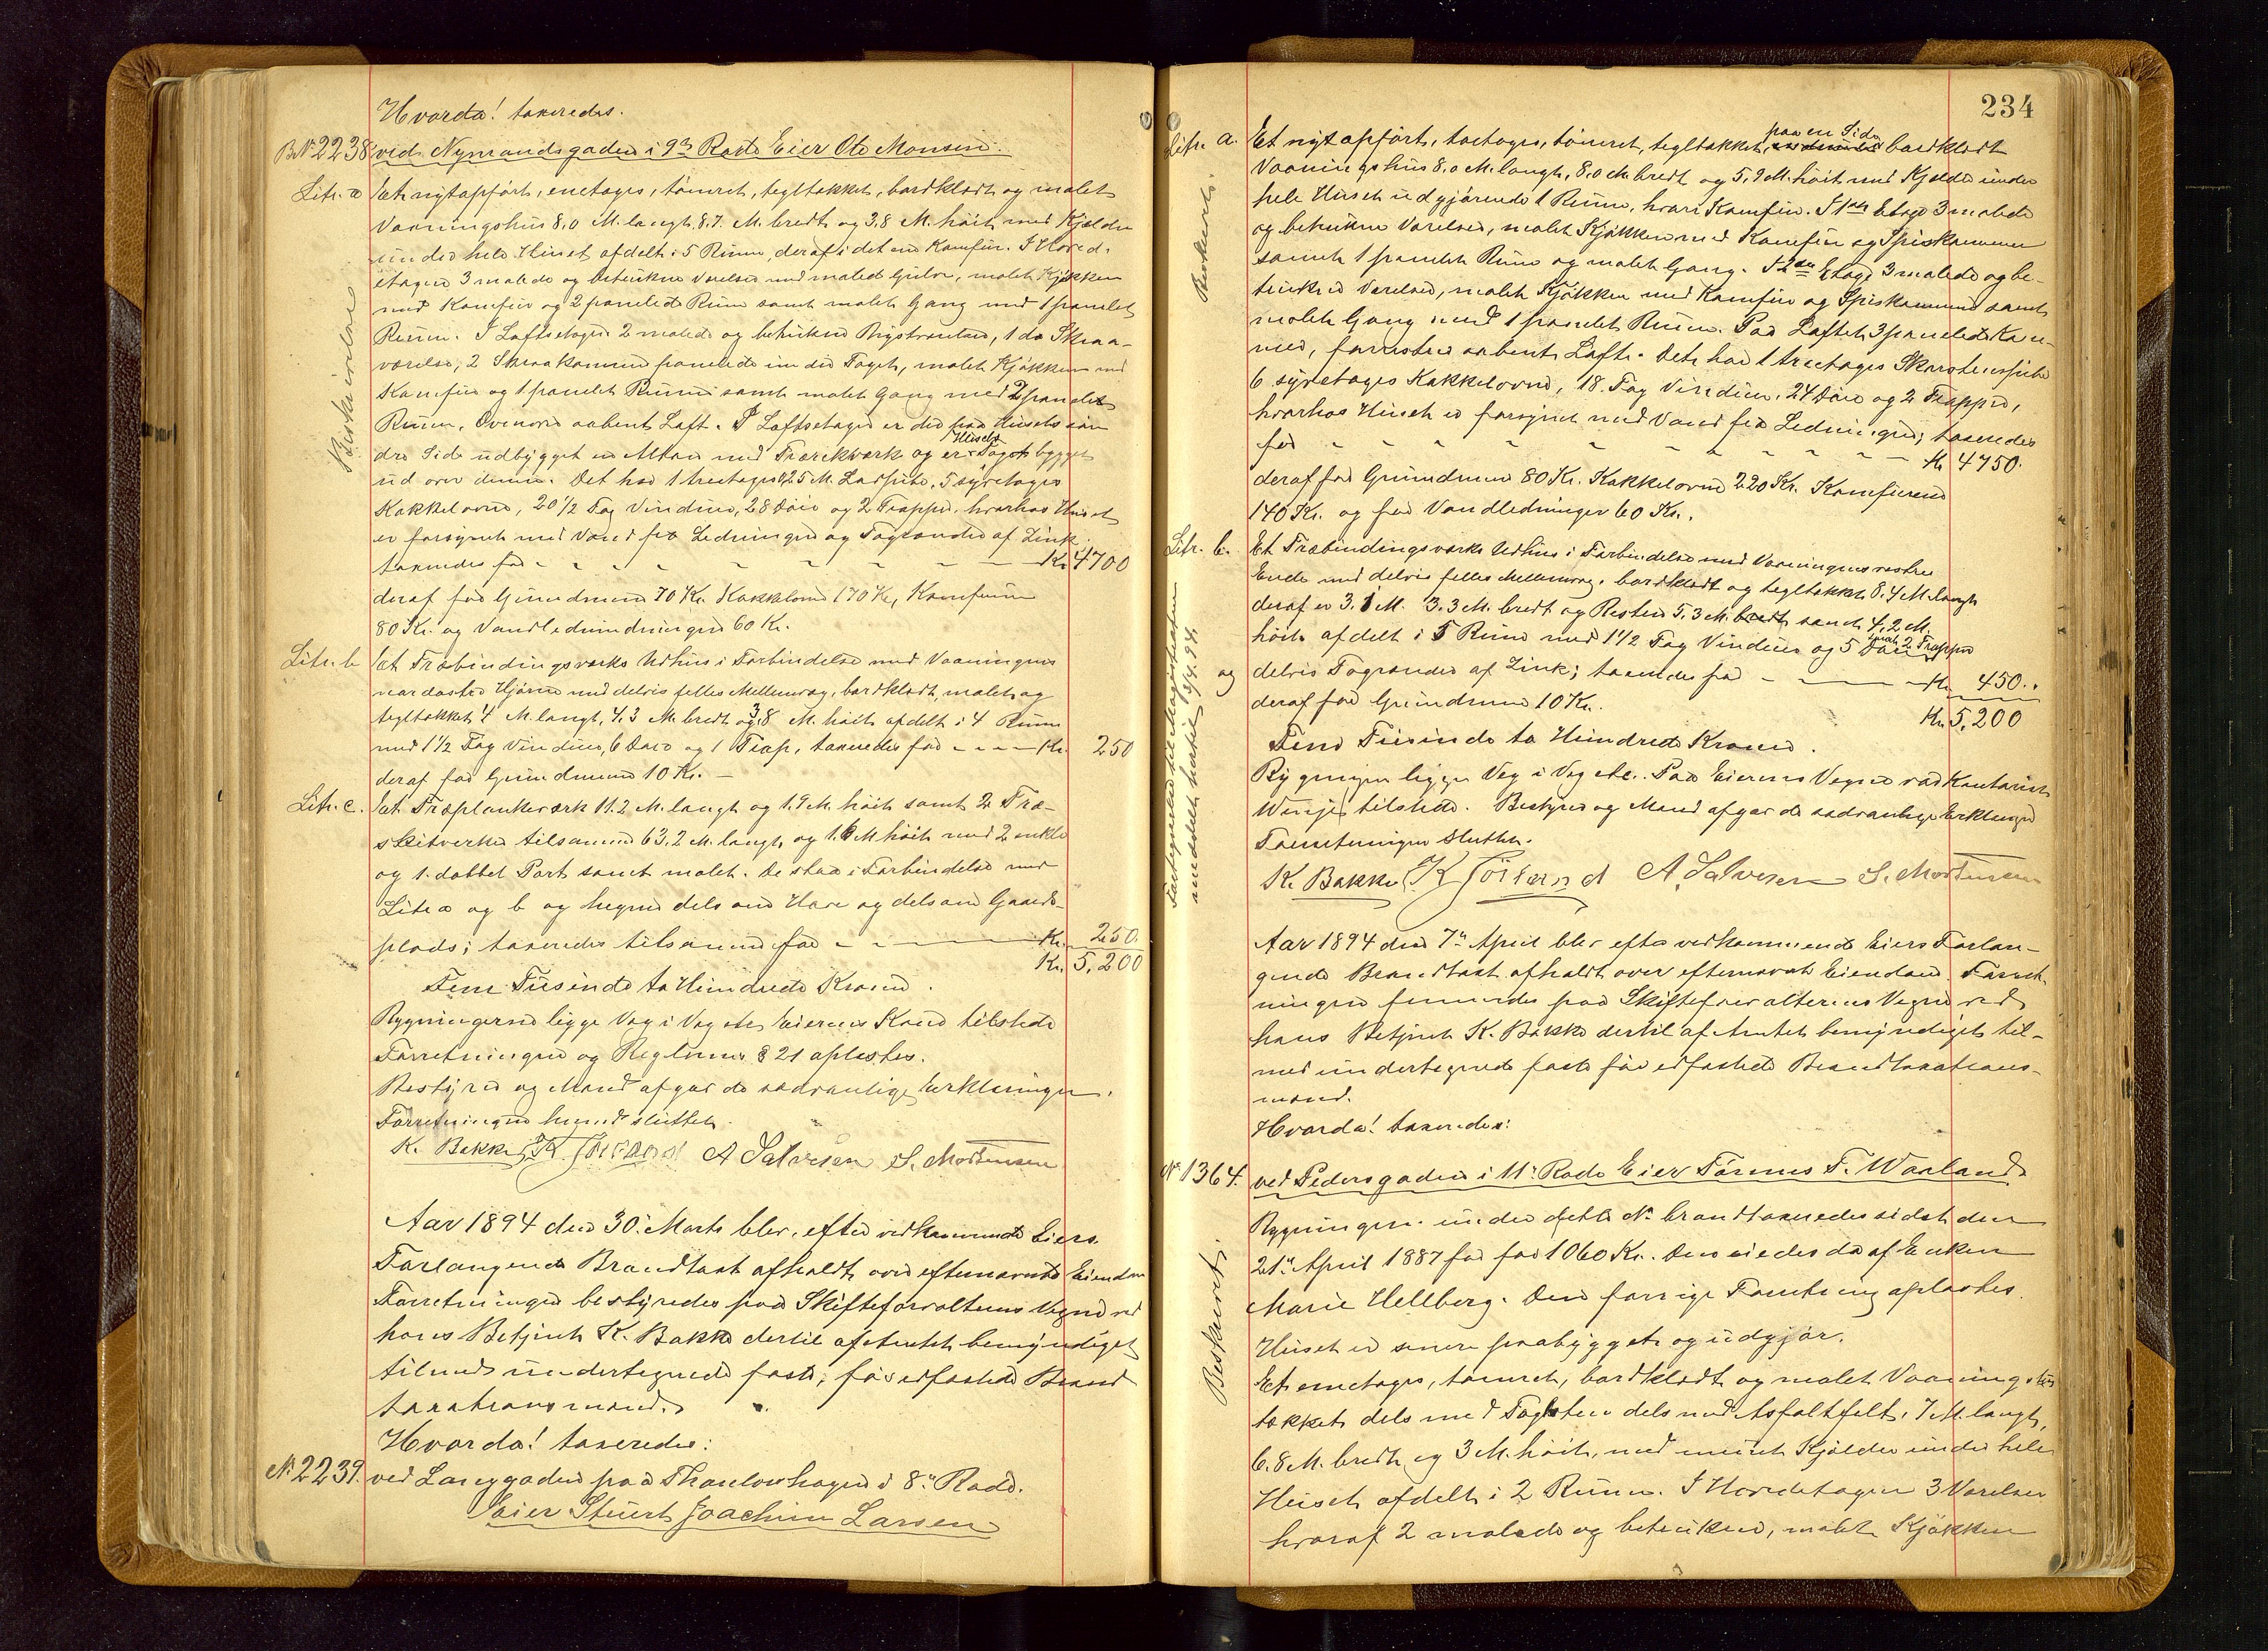 Hvorda! taxeredes.
B.N. 2238 ved Nymandsgaden i 9de Rode Eier Ole Monsen.
Litr. a Et nyt opført, enetages, tømret, tegltækket, bordklædt og malet
Vaaningshus 8,0 M. langt, 8.7. M. bredt og 3,8 M. høit med Kjælder
under hele Huset afdelt i 5 Rum, deraf i det ene Komfur. I Hoved-
etagen 3 malede og betrukne Værelser med maled Gulve, malet Kjøkken
med Komfur og 2 panelede Rum samt malet Gang med 1 panelet
Rum. I Loftsetagen 2 malede og betrukne Kvistværelser, 1 do Skraa-
værelse, 2 Skraakammere panelede under Taget, malet Kjøkken med
Komfur og 1 panelet Rum samt malet Gang med 2 panelet
Rum. Ovenover aabent Loft. I Loftsetagen er der paa Husets søn-
dre Side udbygget en Altan med Trærækværk og er Husets Tag bygget
ud over denne. Det har 1 treetages 1,25 M. Ladpibe, 5 syvetages
Kakkelovne, 20 1/2 Fag Vinduer, 28 Døre og 2 Trapper, hvorhos Huset
er forsynet med Vand fra Ledningen og Tagrender af Zink.
taxeredes for - - - - - Kr. 4700
deraf for Grundmuren 70 Kr. Kakkelovne 170 Kr, Komfurene
80 Kr. og Vandledningen 60 Kr.
Litr. b Et Træbindingsværks Udhus i Forbindelse med Vaaningens
nordøstre Hjørne med delvis fælles Mellemvæg, bordklædt, malet og
tegltækket 4 M. langt, 4,3 M. bredt og 3,8 M. høit afdelt i 4 Rum
med 1 1/2 Fag Vinduer, 6 Døre og 1 Trap, taxeredes for - - - Kr. 250
deraf for Grundmuren 10 Kr. -
Litr. c. Et Træplankeværk 11.2 M. langt og 1.9 M. høit samt 2 Træ-
stkitverker tilsammen 63,2 M. langt og 1.6 M høit med 2 enkle
og 1 dobbel Port samt malet. De staa i Forbindelse med
Litr a og b og hegner dels om Have og dels om Gaards-
plads; taxeredes tilsammen for - - - Kr. 250.
Kr. 5,200
Fem Tusinde to Hundrede Kroner.
Bygningerne ligge Væg i Væg etc. Eierens Kone tilstede
Forretningen og Reglerne § 21 oplæstes.
Bestyrer og Mænd afgav de sædvanlige Erklæringer.
Forretningen hermed sluttet.
K. Bakke K. Jörland A Salvesen S. Mortensen
Beskrivelse
Aar 1894 den 30. Marts blev, efter vedkommende Eiers
Forlangende Brandtaxt afholdt over efternævnte Eiendom
Forretningen bestyredes paa Skifteforvalterens Vegne ved
hans Betjent K. Bakke dertil af Amtet bemyndiget
tilmed undertegnede faste, før edfæstede Brand
taxationsmænd.
Hvorda! taxeredes:
N. 2239. ved Langgaden paa Thaulowhagen i 8. Rode.
Eier Stuert Joachim Larsen
234
Litr. a. Et nyt opført, toetages, tømret, tegltækket, paa en Side bordklædt
Vaaningshus 8,0 M. langt, 8,0 M. bredt og 5,9 M. høit med Kjælder under
hele Huset udgjørende 1 Rum, hvori Komfur. I 1ste Etage 3 malede
og betrukne Værelser, malet Kjøkken med Komfur og Spiskammer
samt 1 panelet Rum og malet Gang. I 2den Etage 3 malede og be-
trukne Værelser, malet Kjøkken med Komfur og Spiskammer samt
malet Gang med 1 panelet Rum. Paa Loftet 3 panelede Kam-
mer, forøvrigt aabent Loft. Det har 1 treetages Skorstenspibe
6 syvetages Kakkelovne, 18. Fag Vinduer, 24 Døre og 2 Trapper,
hvorhos Huset er forsynet med Vand fra Ledningen; taxeredes
for - - - - - Kr 4750.
deraf for Grundmuren 80 Kr. Kakkelovne 220 Kr. Komfurene
140 Kr. og for Vandledningen 60 Kr.
Litr. b. Et Træbindingsværks Udhus i Forbindelse med Vaaningens vestre
Ende med delvis fælles Mellemvæg, bordklædt og tegltækket 8.4 M. langt
deraf er 3.1 M. 3.3 M. bredt og Resten 5,3 M. bredt samt 4,2 M.
høit afdelt i 5 Rum med 1 1/2 Fag Vinduer og 5 Døre samt 2 Trapper
og delvis Tagrender af Zink; taxeredes for - - - Kr. 450..
deraf for Grundmuren 10 Kr.
Kr. 5,200
Fem Tusinde to Hundrede Kroner.
Bygningen ligger Væg i Væg etc. Paa Eierens Vegne var Kontorist
Winje tilstede. Bestyrer og Mænd afgav de sædvanlige Erklæringer
Forretningen sluttet.
K. Bakke K Jörland A. Salvesen S. Mortensen
Beskrivels.
Fortegnelse til Magistraten
meddelt herfra 13/4. 94.
Aar 1894 den 7de April blev efter vedkommende Eiers Forlan-
gende Brandtaxt afholdt over efternævnte Eiendom. Forret-
ningen fremmedes paa Skifteforvalterens Vegne ved
hans Betjent K. Bakke dertil af Amtet bemyndiget til-
med undertegnede faste før edfæstede Brandtaxations-
mænd.
Hvorda! taxeredes:
N. 1364. ved Pedersgaden i 11. Rode Eier Tønnes T. Waaland
Bygningen under dette N. brandtaxeredes sidst den
21. April 1887 for for 1060 Kr. Den eiedes da af Enken
Marie Hellberg. Den forrige Forretning oplæstes.
Huset er senere paabygget og udgjør.
Et enetages, tømret, bordklædt og malet Vaaningshus
tækket dels med Taglsten dels med Asfaltfilt, 7 M. langt,
6.8 M. bredt og 3 M. høit, med muret Kjælder under hele
Huset afdelt i 2 Rum. I Hovedetagen 3 Værelser
hvoraf 2 malede og betrukne, malet Kjøkken
Beskrivels.